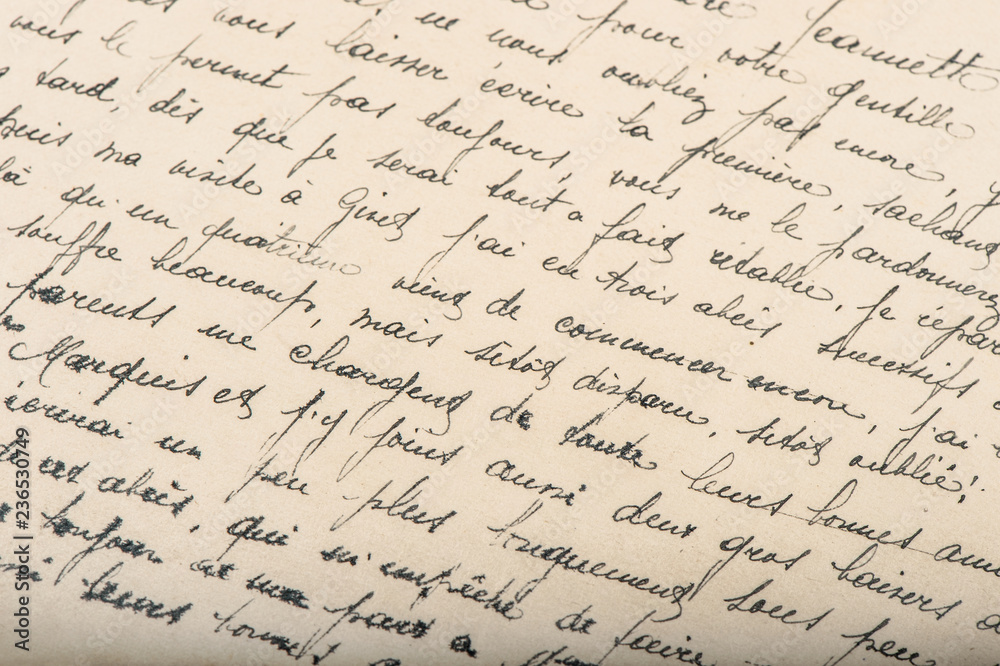 Jeannette
pour votre gentille
ne nous oubliez pas encore,
vous laisser écrire la première, sachant
vous le permet pas toujours, vous me le pardonnerez
tard, dès que je serai tout a fait rétablie, je répar
puis ma visite à Givet j'ai eu trois abcès successifs
là qu'un quatrième vient de commencer encore, j'ai
souffre beaucoup, mais sitôt disparu, sitôt oublié!
parents me chargent de toute leurs bonnes ami
Marquis et j'y joins aussi deux gros baisers
écrirai un peu plus longuement sous peu
cet abcès, qui m'empêche de faire
toujours
leurs bonnes
Adobe Stock | #236530749